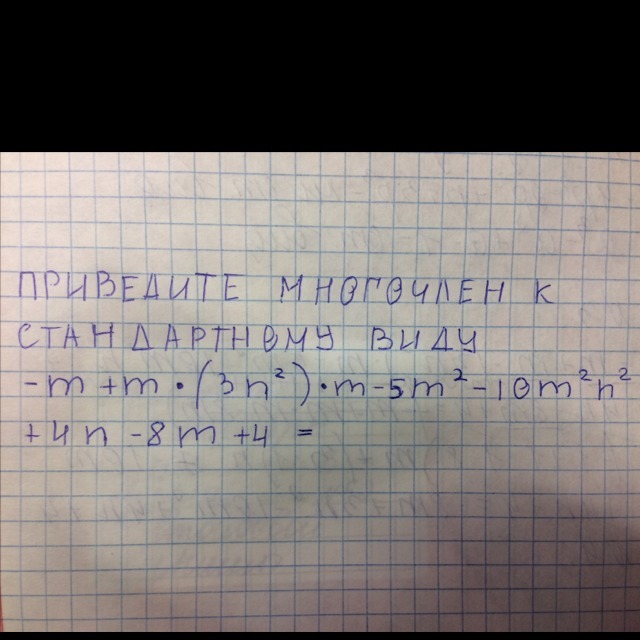 ПРИВЕДИТЕ МНОГОЧЛЕН К
СТАНДАРТНОМУ ВИДУ
-m+m·(3n²)·m-5m²-10m²n²
+4n-8m+4=